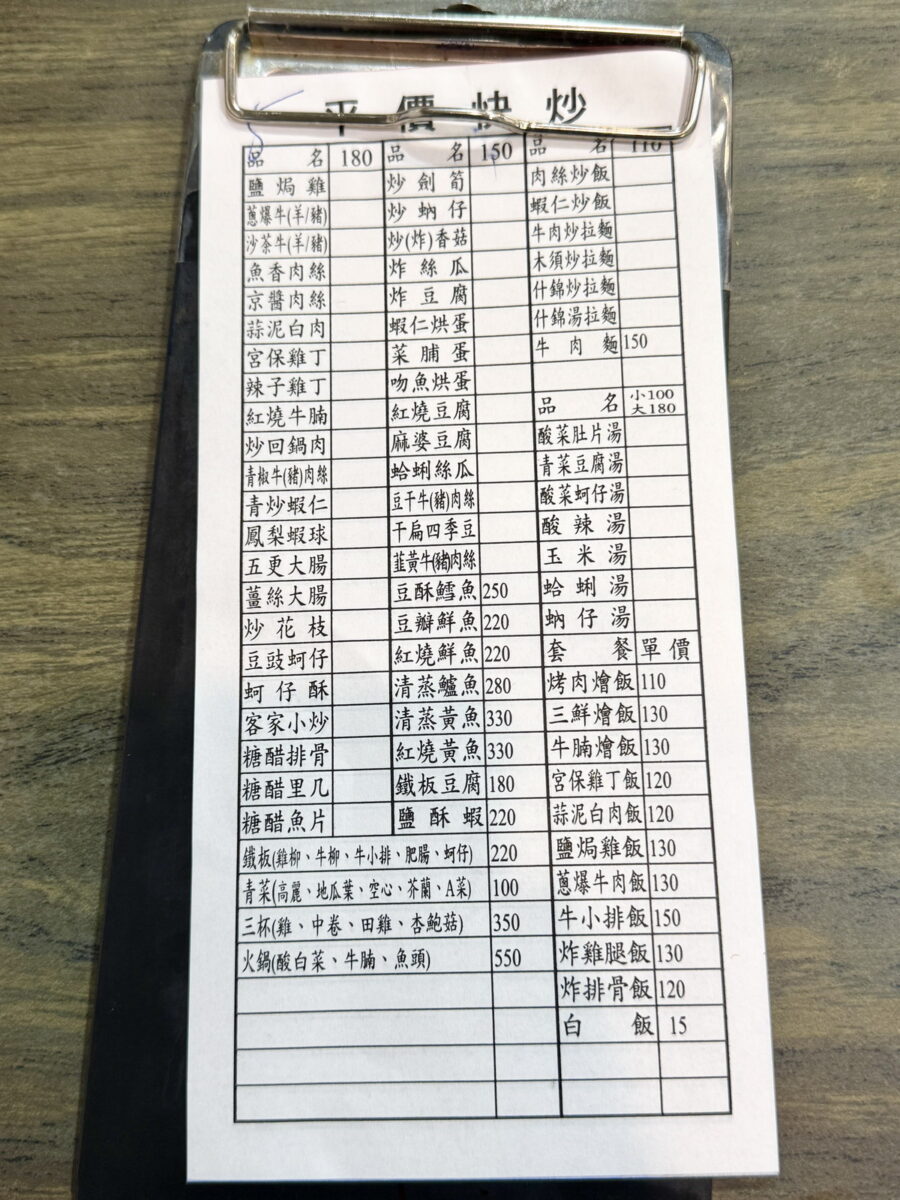 5
平價快炒
品名 180
鹽焗雞
蔥爆牛(羊/豬)
沙茶牛(羊/豬)
魚香肉絲
京醬肉絲
蒜泥白肉
宮保雞丁
辣子雞丁
紅燒牛腩
炒回鍋肉
青椒牛(豬)肉絲
青炒蝦仁
鳳梨蝦球
五更大腸
薑絲大腸
炒花枝
豆豉蚵仔
蚵仔酥
客家小炒
糖醋排骨
糖醋里几
糖醋魚片
品名 150
炒劍筍
炒蚋仔
炒(炸)香菇
炸絲瓜
炸豆腐
蝦仁烘蛋
菜脯蛋
吻魚烘蛋
紅燒豆腐
麻婆豆腐
蛤蜊絲瓜
豆干牛(豬)肉絲
干扁四季豆
韮黃牛(豬)肉絲
豆酥鱈魚 250
豆瓣鮮魚 220
紅燒鮮魚 220
清蒸鱸魚 280
清蒸黃魚 330
紅燒黃魚 330
鐵板豆腐 180
鹽酥蝦 220
鐵板(雞柳、牛柳、牛小排、肥腸、蚵仔) 220
青菜(高麗、地瓜葉、空心、芥蘭、A菜) 100
三杯(雞、中卷、田雞、杏鮑菇) 350
火鍋(酸白菜、牛腩、魚頭) 550
品名 110
肉絲炒飯
蝦仁炒飯
牛肉炒拉麵
木須炒拉麵
什錦炒拉麵
什錦湯拉麵
牛肉麵 150
品名 小100 大180
酸菜肚片湯
青菜豆腐湯
酸菜蚵仔湯
酸辣湯
玉米湯
蛤蜊湯
蚋仔湯
套餐 單價
烤肉燴飯 110
三鮮燴飯 130
牛腩燴飯 130
宮保雞丁飯 120
蒜泥白肉飯 120
鹽焗雞飯 130
蔥爆牛肉飯 130
牛小排飯 150
炸雞腿飯 130
炸排骨飯 120
白飯 15